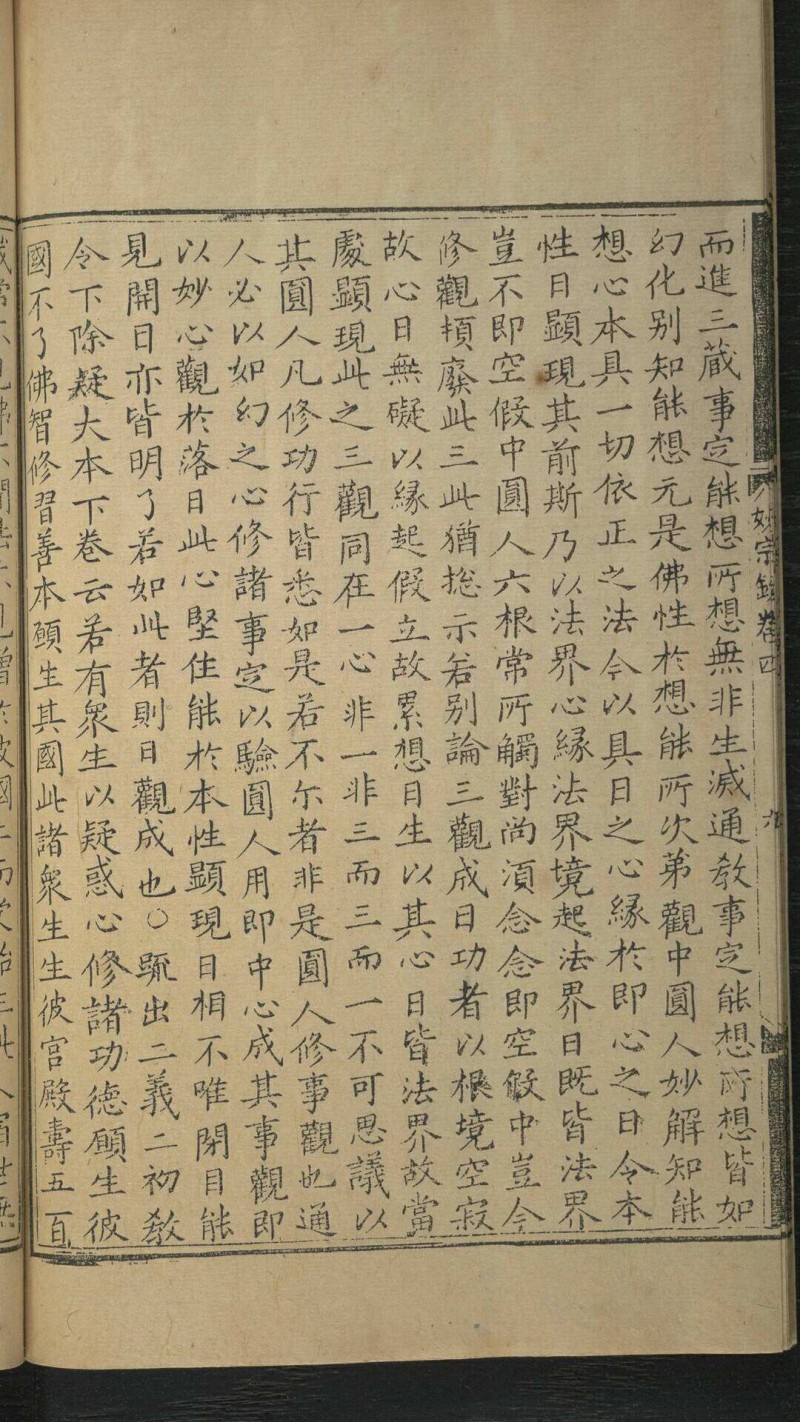 妙宗鈔卷四
六
而進三蔵事定能想所想無非生滅通教事定能想所想皆如
幻化别知能想元是佛性於想能所次第觀中圓人妙解知能
想心本具一切依正之法今以具日之心緣於即心之日令本
性日顯現其前斯乃以法界心緣法界境起法界日既皆法界
豈不即空假中圓人六根常所觸對尚湏念念即空假中豈今
修觀頓廢此三此猶捴示若别論三觀成日功者以根境空寂
故心日無礙以緣起假立故累想日生以其心日皆法界故當
處顯現此之三觀同在一心非一非三而三而一不可思議以
其圓人凡修功行皆悉如是若不尓者非是圓人修事觀也通
人必以如幻之心修諸事定以驗圓人用即中心成其事觀即
以妙心觀於落日此心堅住能於本性顯現日相不唯閉目能
見開日亦皆明了若如此者則日觀成也〇䟽出二義二初教
令下除疑大本下卷云若有衆生以疑惑心修諸功德願生彼
國不了佛智修習善本願生其國此諸衆生生彼宫殿壽五百